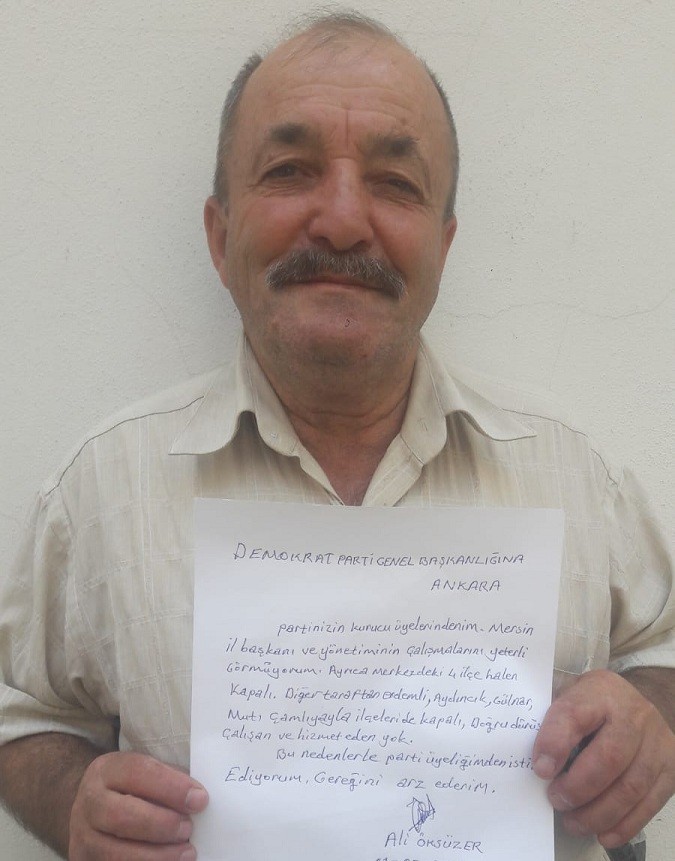 DEMOKRAT PARTİ GENEL BAŞKANLIĞINA
ANKARA
Partinizin kurucu üyelerindenim. Mersin
il başkanı ve yönetiminin çalışmalarını yeterli
Görmüyorum. Ayrıca Merkezdeki 4 ilçe halen
Kapalı. Diğer taraftan Erdemli, Aydıncık, Gülnar,
Mut, Çamlıyayla ilçeleride kapalı, Doğru dürüs
Çalışan ve hizmet eden yok.
Bu nedenlerle parti üyeliğimden isti
Ediyorum. Gereğini arz ederim.
Ali ÖKSÜZER